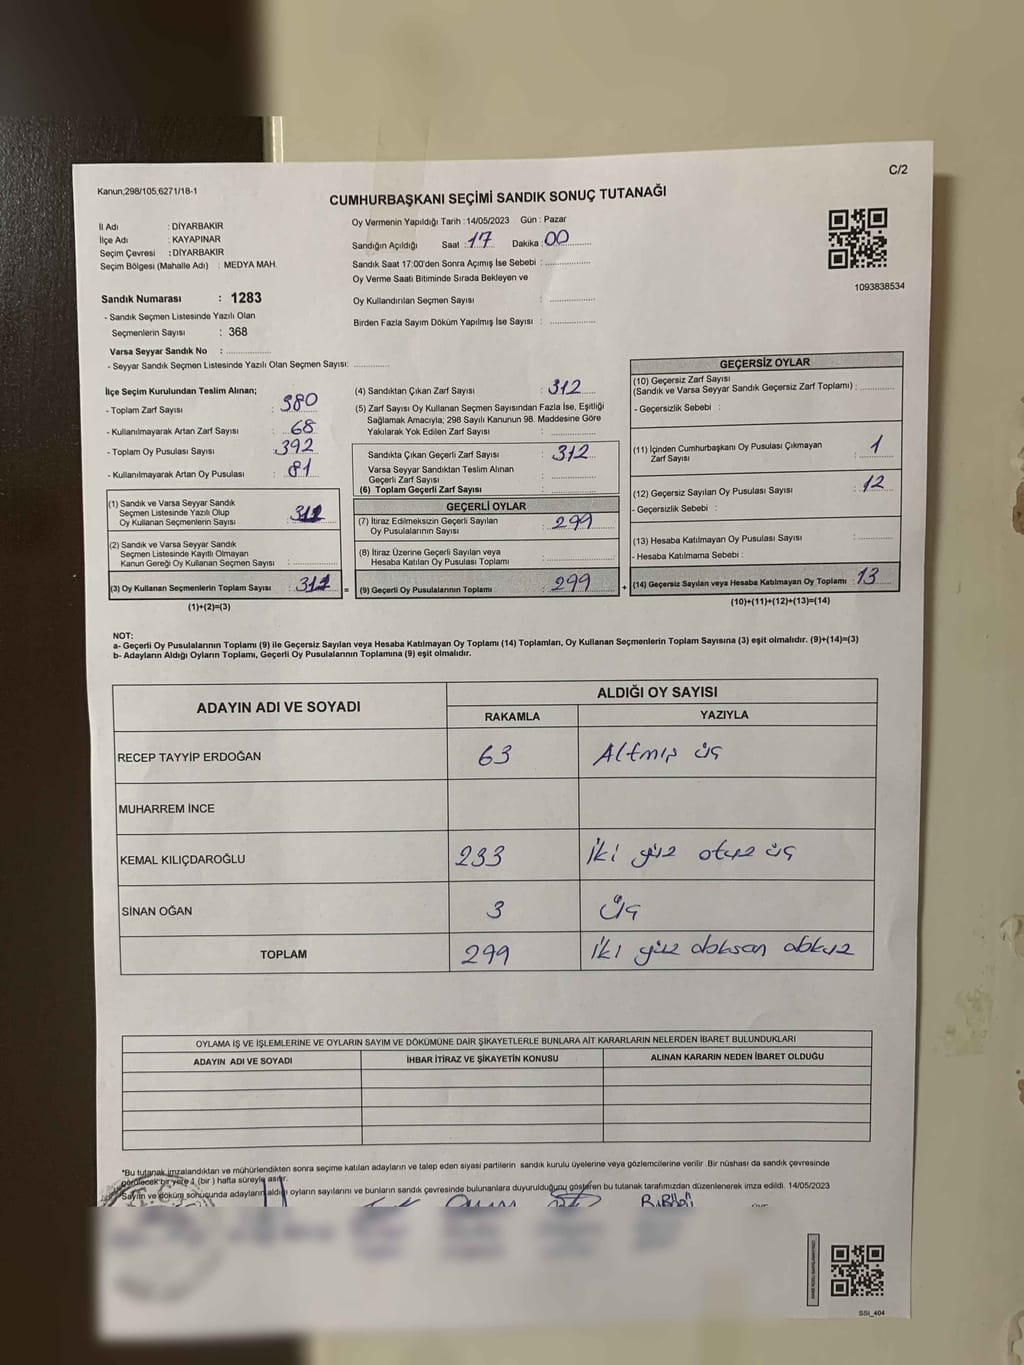 C/2
Kanun;298/105,6271/18-1
CUMHURBAŞKANI SEÇİMİ SANDIK SONUÇ TUTANAĞI
İl Adı : DİYARBAKIR
İlçe Adı : KAYAPINAR
Seçim Çevresi : DİYARBAKIR
Seçim Bölgesi (Mahalle Adı) : MEDYA MAH.
Oy Vermenin Yapıldığı Tarih : 14/05/2023 Gün : Pazar
Sandığın Açıldığı Saat : 17 Dakika : 00
Sandık Saat 17:00'den Sonra Açımış İse Sebebi : ..............
Oy Verme Saati Bitiminde Sırada Bekleyen ve
Oy Kullandırılan Seçmen Sayısı : ..............
Birden Fazla Sayım Döküm Yapılmış İse Sayısı : ..............
1093838534
Sandık Numarası : 1283
- Sandık Seçmen Listesinde Yazılı Olan
Seçmenlerin Sayısı : 368
Varsa Seyyar Sandık No : ..............
- Seyyar Sandık Seçmen Listesinde Yazılı Olan Seçmen Sayısı: ..............
İlçe Seçim Kurulundan Teslim Alınan;
- Toplam Zarf Sayısı : 380
- Kullanılmayarak Artan Zarf Sayısı : 68
- Toplam Oy Pusulası Sayısı : 392
- Kullanılmayarak Artan Oy Pusulası : 81
(1) Sandık ve Varsa Seyyar Sandık
Seçmen Listesinde Yazılı Olup
Oy Kullanan Seçmenlerin Sayısı :
(2) Sandık ve Varsa Seyyar Sandık
Seçmen Listesinde Kayıtlı Olmayan
Kanun Gereği Oy Kullanan Seçmen Sayısı : ..............
(3) Oy Kullanan Seçmenlerin Toplam Sayısı : =
(1)+(2)=(3)
(4) Sandıktan Çıkan Zarf Sayısı : 312
(5) Zarf Sayısı Oy Kullanan Seçmen Sayısından Fazla İse, Eşitliği
Sağlamak Amacıyla; 298 Sayılı Kanunun 98. Maddesine Göre
Yakılarak Yok Edilen Zarf Sayısı : ..............
Sandıkta Çıkan Geçerli Zarf Sayısı : 312
Varsa Seyyar Sandıktan Teslim Alınan
Geçerli Zarf Sayısı : ..............
(6) Toplam Geçerli Zarf Sayısı : ..............
GEÇERLİ OYLAR
(7) İtiraz Edilmeksizin Geçerli Sayılan
Oy Pusulalarının Sayısı : 299
(8) İtiraz Üzerine Geçerli Sayılan veya
Hesaba Katılan Oy Pusulası Toplamı : ..............
(9) Geçerli Oy Pusulalarının Toplamı : 299 +
GEÇERSİZ OYLAR
(10) Geçersiz Zarf Sayısı
(Sandık ve Varsa Seyyar Sandık Geçersiz Zarf Toplamı) : ..............
- Geçersizlik Sebebi :
(11) İçinden Cumhurbaşkanı Oy Pusulası Çıkmayan
Zarf Sayısı : 1
(12) Geçersiz Sayılan Oy Pusulası Sayısı : 12
- Geçersizlik Sebebi :
(13) Hesaba Katılmayan Oy Pusulası Sayısı : ..............
- Hesaba Katılmama Sebebi :
(14) Geçersiz Sayılan veya Hesaba Katılmayan Oy Toplamı : 13
(10)+(11)+(12)+(13)=(14)
NOT:
a- Geçerli Oy Pusulalarının Toplamı (9) ile Geçersiz Sayılan veya Hesaba Katılmayan Oy Toplamı (14) Toplamları, Oy Kullanan Seçmenlerin Toplam Sayısına (3) eşit olmalıdır. (9)+(14)=(3)
b- Adayların Aldığı Oyların Toplamı, Geçerli Oy Pusulalarının Toplamına (9) eşit olmalıdır.
ADAYIN ADI VE SOYADI
ALDIĞI OY SAYISI
RAKAMLA YAZIYLA
RECEP TAYYİP ERDOĞAN 63 Altmış üç
MUHARREM İNCE
KEMAL KILIÇDAROĞLU 233 İki yüz otuz üç
SİNAN OĞAN 3 Üç
TOPLAM 299 İki yüz doksan dokuz
OYLAMA İŞ VE İŞLEMLERİNE VE OYLARIN SAYIM VE DÖKÜMÜNE DAİR ŞİKAYETLERLE BUNLARA AİT KARARLARIN NELERDEN İBARET BULUNDUKLARI
ADAYIN ADI VE SOYADI İHBAR İTİRAZ VE ŞİKAYETİN KONUSU ALINAN KARARIN NEDEN İBARET OLDUĞU
*Bu tutanak imzalandıktan ve mühürlendikten sonra seçime katılan adayların ve talep eden siyasi partilerin sandık kurulu üyelerine veya gözlemcilerine verilir .Bir nüshası da sandık çevresinde
görülecek bir yere 1 (bir ) hafta süreyle asılır.
*Sayım ve döküm sonucunda adayların aldığı oyların sayılarını ve bunların sandık çevresinde bulunanlara duyurulduğunu gösteren bu tutanak tarafımızdan düzenlenerek imza edildi. 14/05/2023
SSI_404